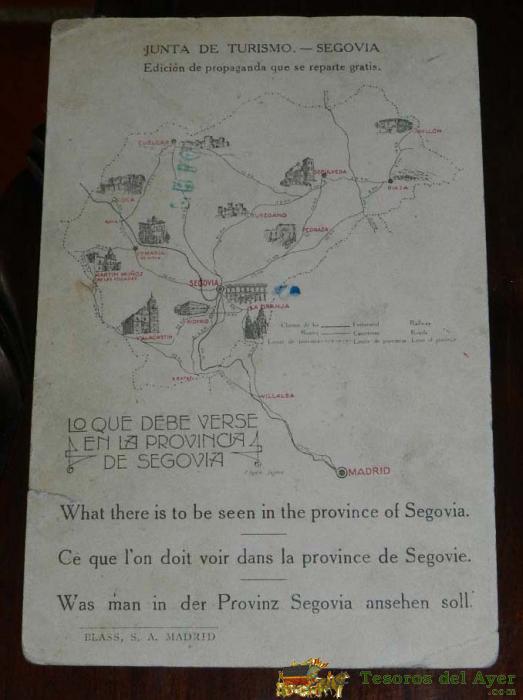 JUNTA DE TURISMO. — SEGOVIA
Edición de propaganda que se reparte gratis.
AYLLÓN
CUELLAR
SEPÚLVEDA
RIAZA
COCA
TUREGANO
PEDRAZA
SEGOVIA
MARTIN MUÑOZ
LA GRANJA
RIOFRIO
VILLACASTIN
Chemin de fer Ferrocarril Railway
Routes Carreteras Roads
Limite de province Límite de provincia
VILLALBA
LO QUE DEBE VERSE
EN LA PROVINCIA
DE SEGOVIA
MADRID
What there is to be seen in the province of Segovia.
Ce que l'on doit voir dans la province de Segovie.
Was man in der Provinz Segovia ansehen soll.
BLASS, S. A. MADRID
Tesoros del Ayer
.com